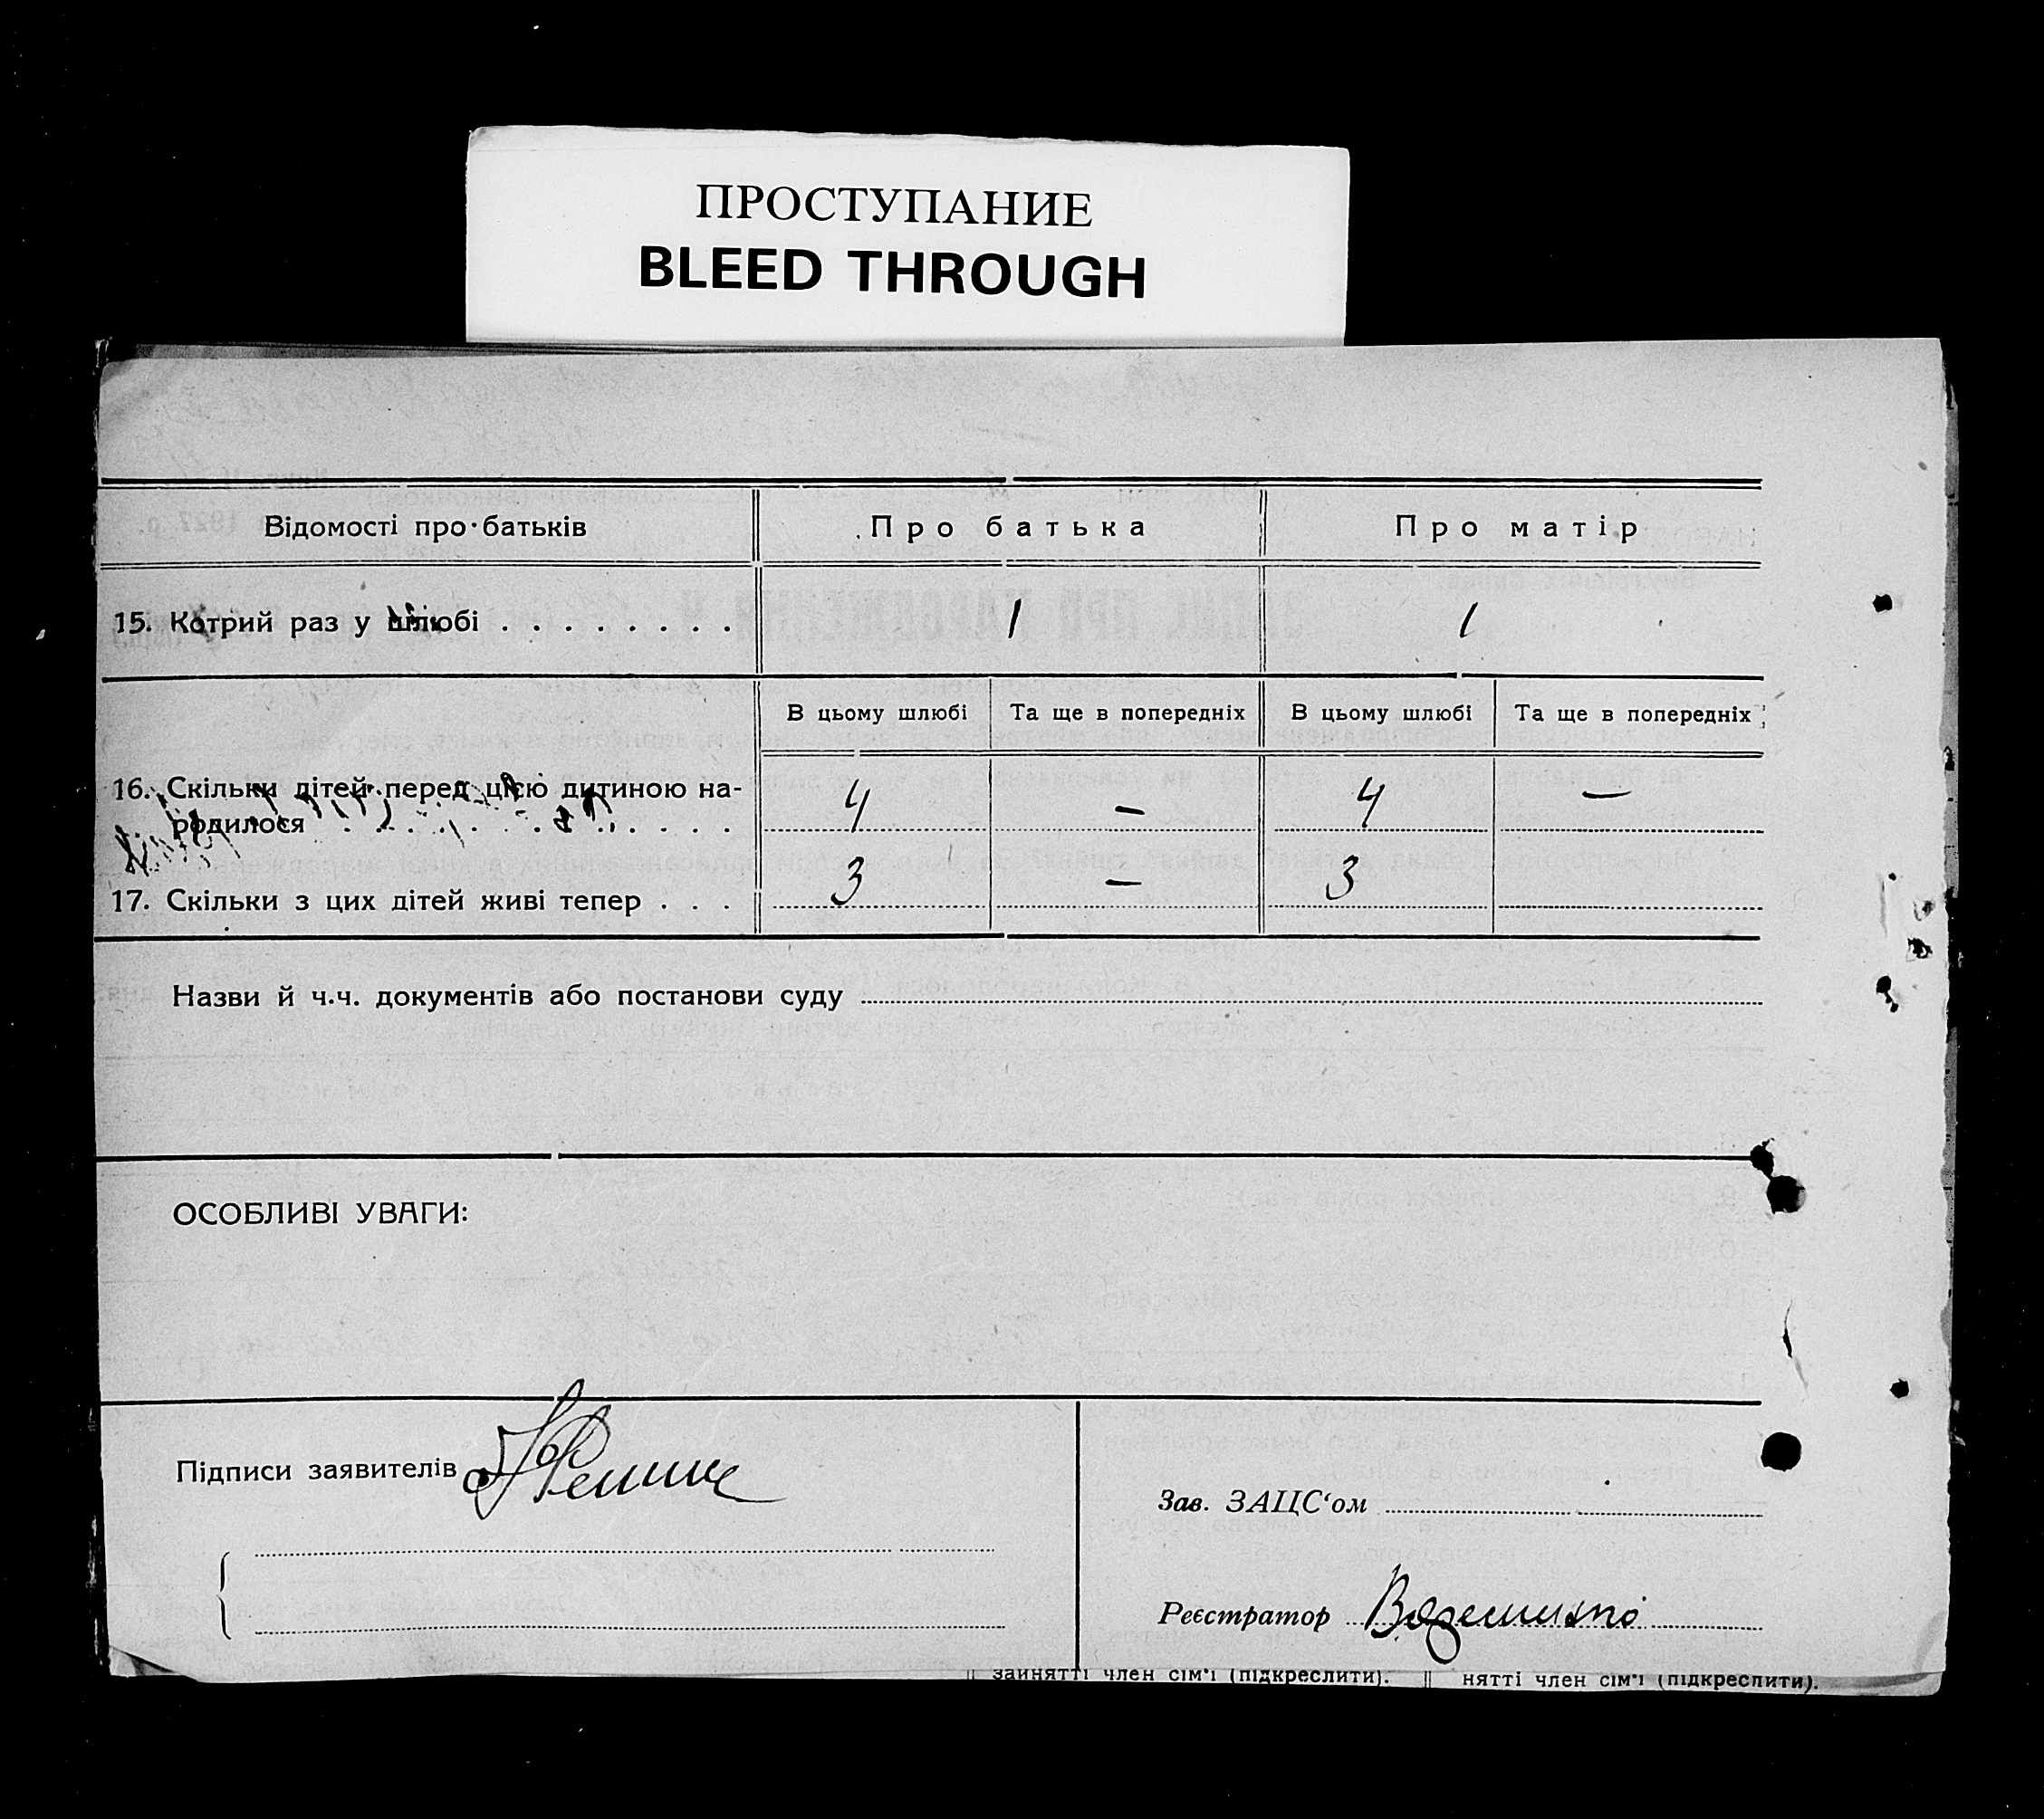 ПРОСТУПАНИЕ
BLEED THROUGH
Відомості про батьків
Про батька
Про матір
15. Котрий раз у шлюбі . . . . . . . .
1
1
В цьому шлюбі
Та ще в попередніх
В цьому шлюбі
Та ще в попередніх
16. Скільки дітей перед цією дитиною на-
родилося . . . . . . . . . . . .
4
–
4
–
17. Скільки з цих дітей живі тепер . . .
3
–
3
Назви й ч.ч. документів або постанови суду
ОСОБЛИВІ УВАГИ:
Підписи заявителів
Зав. ЗАЦС‘ом
Реєстратор
зайнятті член сім'ї (підкреслити).
нятті член сім'ї (підкреслити).